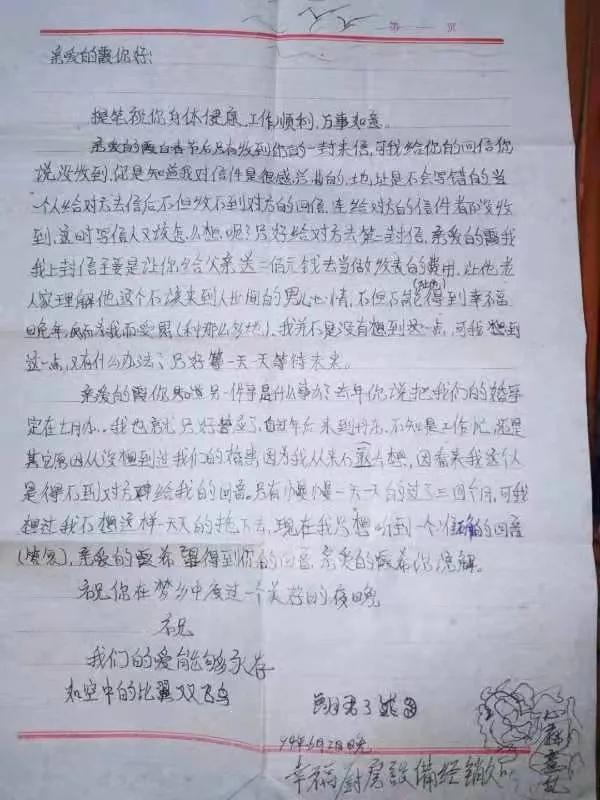 第 页
亲爱的霞你好:
提笔祝你身体健康,工作顺利,万事如意。
亲爱的霞自春节后只有收到你的一封来信,可我给你的回信你
说没收到,你是知道我对信件是很感兴趣的,地址是不会写错的当
一个人给对方去信后不但收不到对方的回信,连给对方的信件都没收
到,这时写信人又该怎么想呢?只好给对方去第二封信,亲爱的霞我
我上封信主要是让你给父亲送二佰元钱去当做收麦的费用,让他老
人家理解他这个不该来到人世间的男儿心情,不但不能让他得到幸福
晚年,反而为我而受累(种那么多地),我并不是没有想到这一点,可我想到
这一点,又有什么办法,只好等一天天等待未来。
亲爱的霞你知道另一件事是什么事办?去年你说把我们的婚事
定在七月份,我也就只好答应了,自过年后来到,不知是工作忙,还是
其它原因从没想到过我们的婚事因为我从来不敢去想,因看来我这个人
是得不到对方给我的回音。只有慢慢一天一天的过了三四个月,可我
想过我不想这样一天天的拖下去,现在我只想听到一个准确的回音
(答复),亲爱的霞希望得到你的回音,亲爱的霞希你谅解。
祝你在梦乡中度过一个美好的夜晚
祝
我们的爱能够永存
如空中的比翼双飞鸟
94年6月2日晚
幸福厨房设备经销处